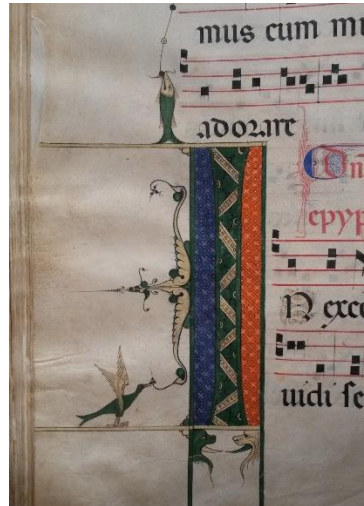 mus cum mu
adorare
epyp
N exce
uidi se